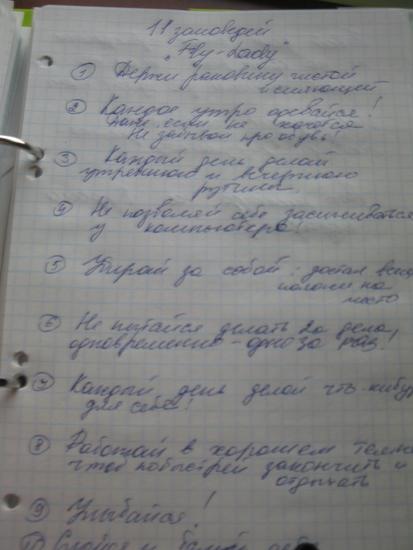 11 заповедей
"Fly-Lady"
① Держи раковину чистой
и сияющей
② Каждое утро одевайся!
Даже если не хочется
Не забывай про обувь!
③ Каждый день делай
утреннюю и вечернюю
рутины.
④ Не позволяй себе засиживаться
у компьютера!
⑤ Убирай за собой: достал вещь
положи на
место
⑥ Не пытайся делать 2а дела
одновременно - одно за раз!
⑦ Каждый день делай что-нибу
для себя!
⑧ Работай в хорошем темпе
чтоб побыстрей закончить и
отдыхать
⑨ Улыбайся!